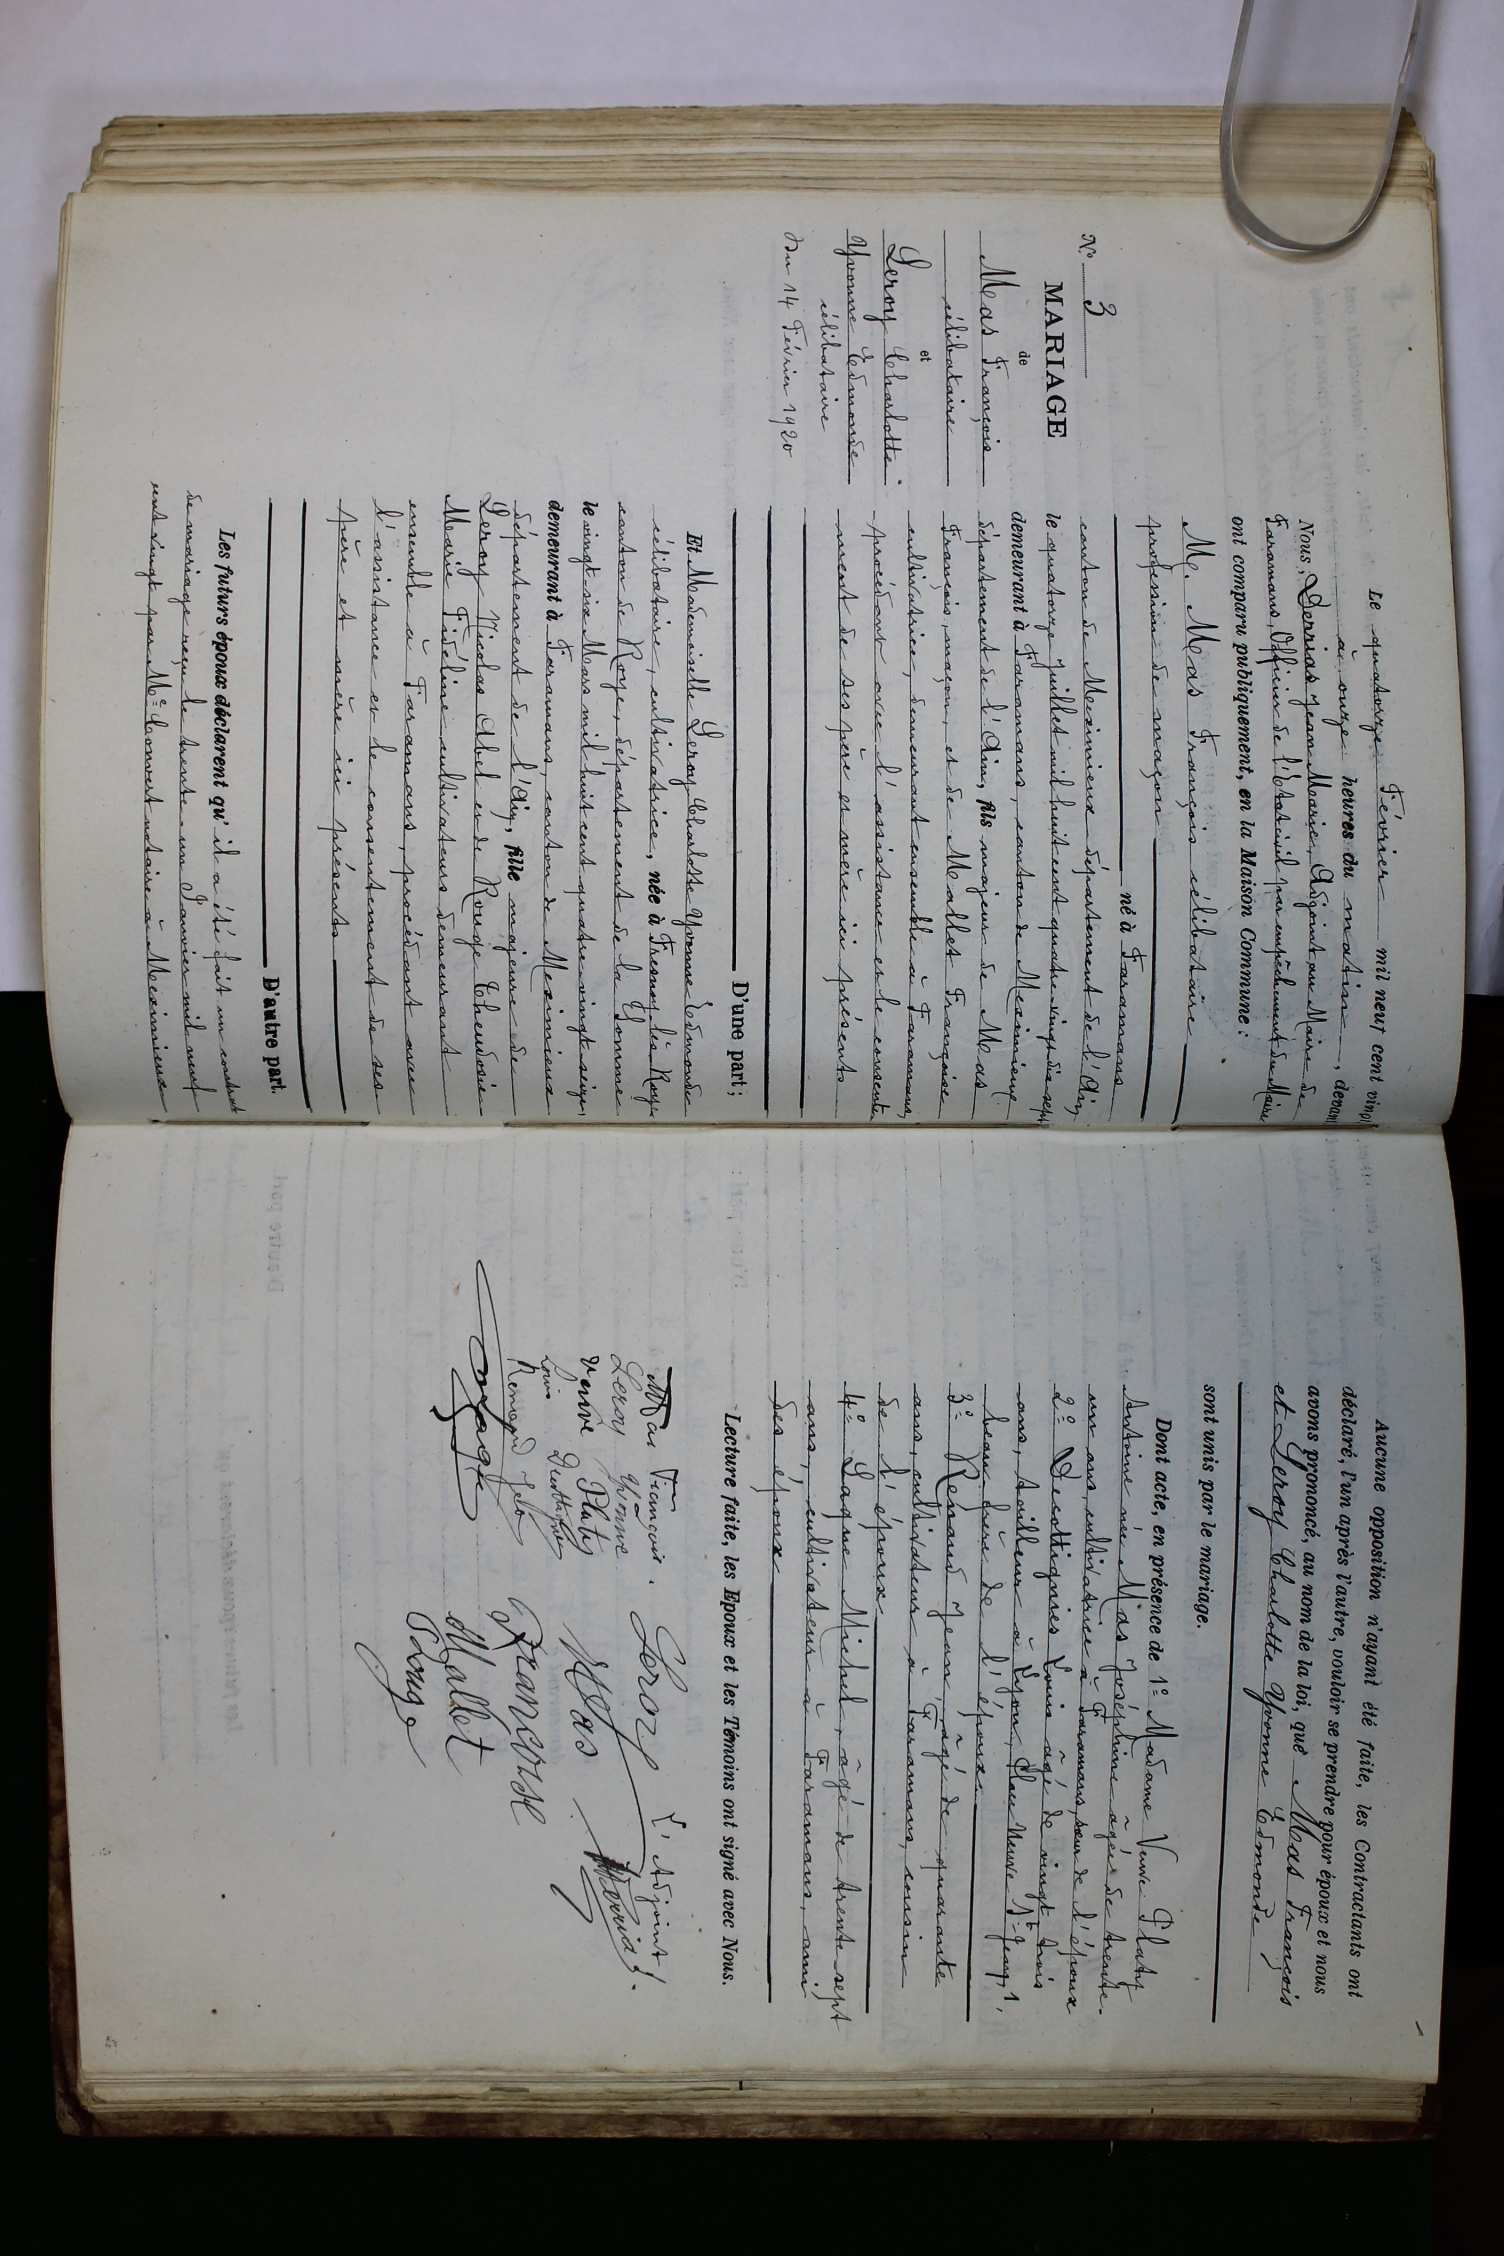 N° 3
MARIAGE
de
Mas François
célibataire
et
Leroy Charlotte
Yvonne Edmonde
célibataire
Du 14 Février 1920
Le quatorze Février mil neuf cent vingt
à onze heures du matin, devant
Nous, Jean Marie, Adjoint au Maire de
Faramans, Officier de l'État civil par empêchement du Maire
ont comparu publiquement, en la Maison Commune :
M. Mas François célibataire
profession de maçon
né à Faramans
canton de Meximieux département de l'Ain
le quatorze Juillet mil huit cent quatre vingt dix sept
demeurant à Faramans, canton de Meximieux
département de l'Ain, fils majeur de Mas
François, maçon, et de Mallet Françoise
cultivatrice, demeurant ensemble à Faramans,
procédant avec l'assistance et le consente
ment de ses père et mère ici présents
D'une part ;
Et Mademoiselle Leroy Charlotte Yvonne Edmonde
célibataire, cultivatrice, née à Fresnoy lès Roye
canton de Roye, département de la Somme
le vingt six Mars mil huit cent quatre vingt seize,
demeurant à Faramans, canton de Meximieux
département de l'Ain, fille majeure de
Leroy Nicolas Abel et de Rouge Theudosie
Marie Fidéline cultivateurs demeurant
ensemble à Faramans, procédant avec
l'assistance et le consentement de ses
père et mère ici présents
D'autre part.
Les futurs époux déclarent qu'il a été fait un contrat
de mariage reçu le trente-un Janvier mil neuf
cent vingt par Me Convert notaire à Meximieux
Aucune opposition n'ayant été faite, les Contractants ont
déclaré, l'un après l'autre, vouloir se prendre pour époux et nous
avons prononcé, au nom de la loi, que Mas François
et Leroy Charlotte Yvonne Edmonde
sont unis par le mariage.
Dont acte, en présence de 1° Madame Veuve Platy
Antoine née Mas Joséphine âgée de trente-
un ans, cultivatrice à Faramans, sœur de l'époux
2° Decottignies Louis âgé de vingt trois
ans, tailleur à Lyon, Place Neuve St Jean, 1,
beau frère de l'épouse
3° Renaud Jean, âgé de quarante
ans, cultivateur à Faramans, cousin
de l'époux
4° Lague Michel, âgé de trente sept
ans, cultivateur à Faramans, ami
des époux
Lecture faite, les Epoux et les Témoins ont signé avec Nous.
Mas François. Leroy L'Adjoint
Leroy Yvonne
Veuve Platy Mas
Louis
Renaud Jean Françoise
Mallet
Lague Rouge